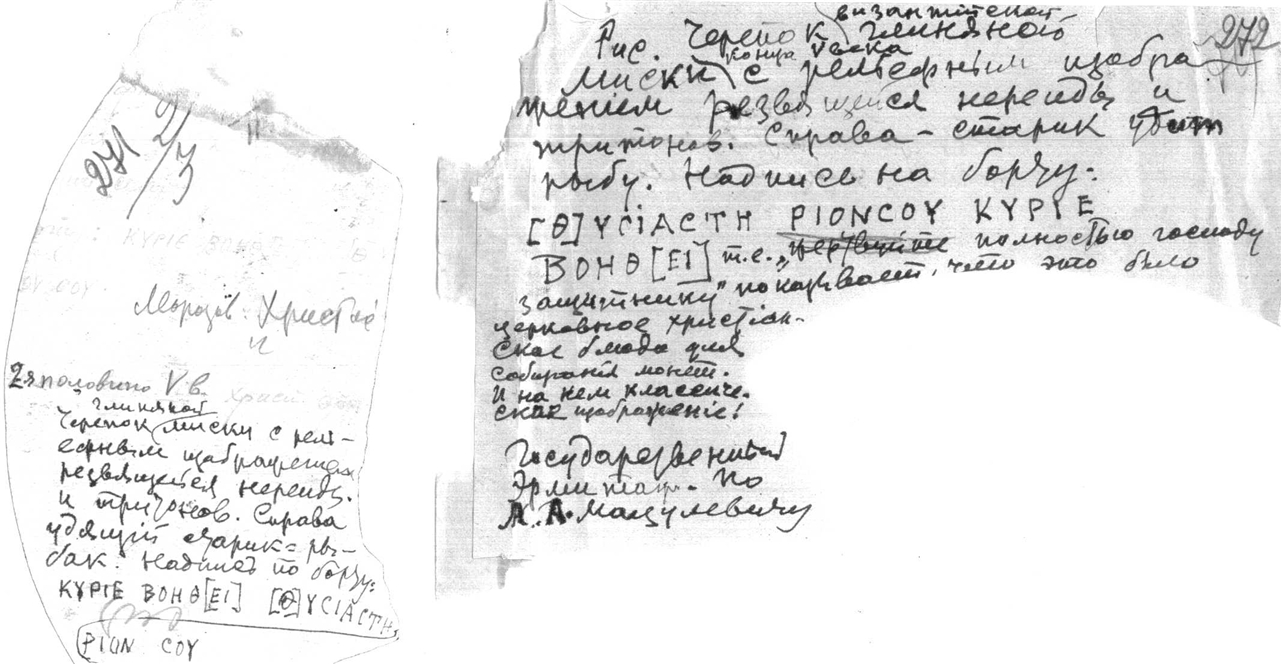 271
2/3
Морозов. Христіа
и
2я половина V в.
глиняной
Черепок миски с рель-
ефным изображением
резвящейся нереиды
и тритонов. Справа
удящий старик=ры-
бак. Надпись по борту:
ΚΥΡΙΕ ΒΟΗΘ[ΕΙ] [Θ]ΥСΙΑСΤΗ
ΡΙΟΝ СΟΥ
272
византийской
Рис. Черепок глиняной
конца V века
миски с рельефным изобра
жением резвящейся нереиды и
тритонов. Справа - старик удит
рыбу. Надпись на борту:
[Θ]ΥСΙΑСΤΗ ΡΙΟΝСΟΥ ΚΥΡΙΕ
ΒΟΗΘ[ΕΙ] т.е. „ полностью господу
защитнику" показывает, что это было
церковное христіан-
ское блюдо для
собиранія монет.
И на нем классиче-
ское изображеніе!
Государственный
Эрмитаж. По
Л. А. Мацулевичу